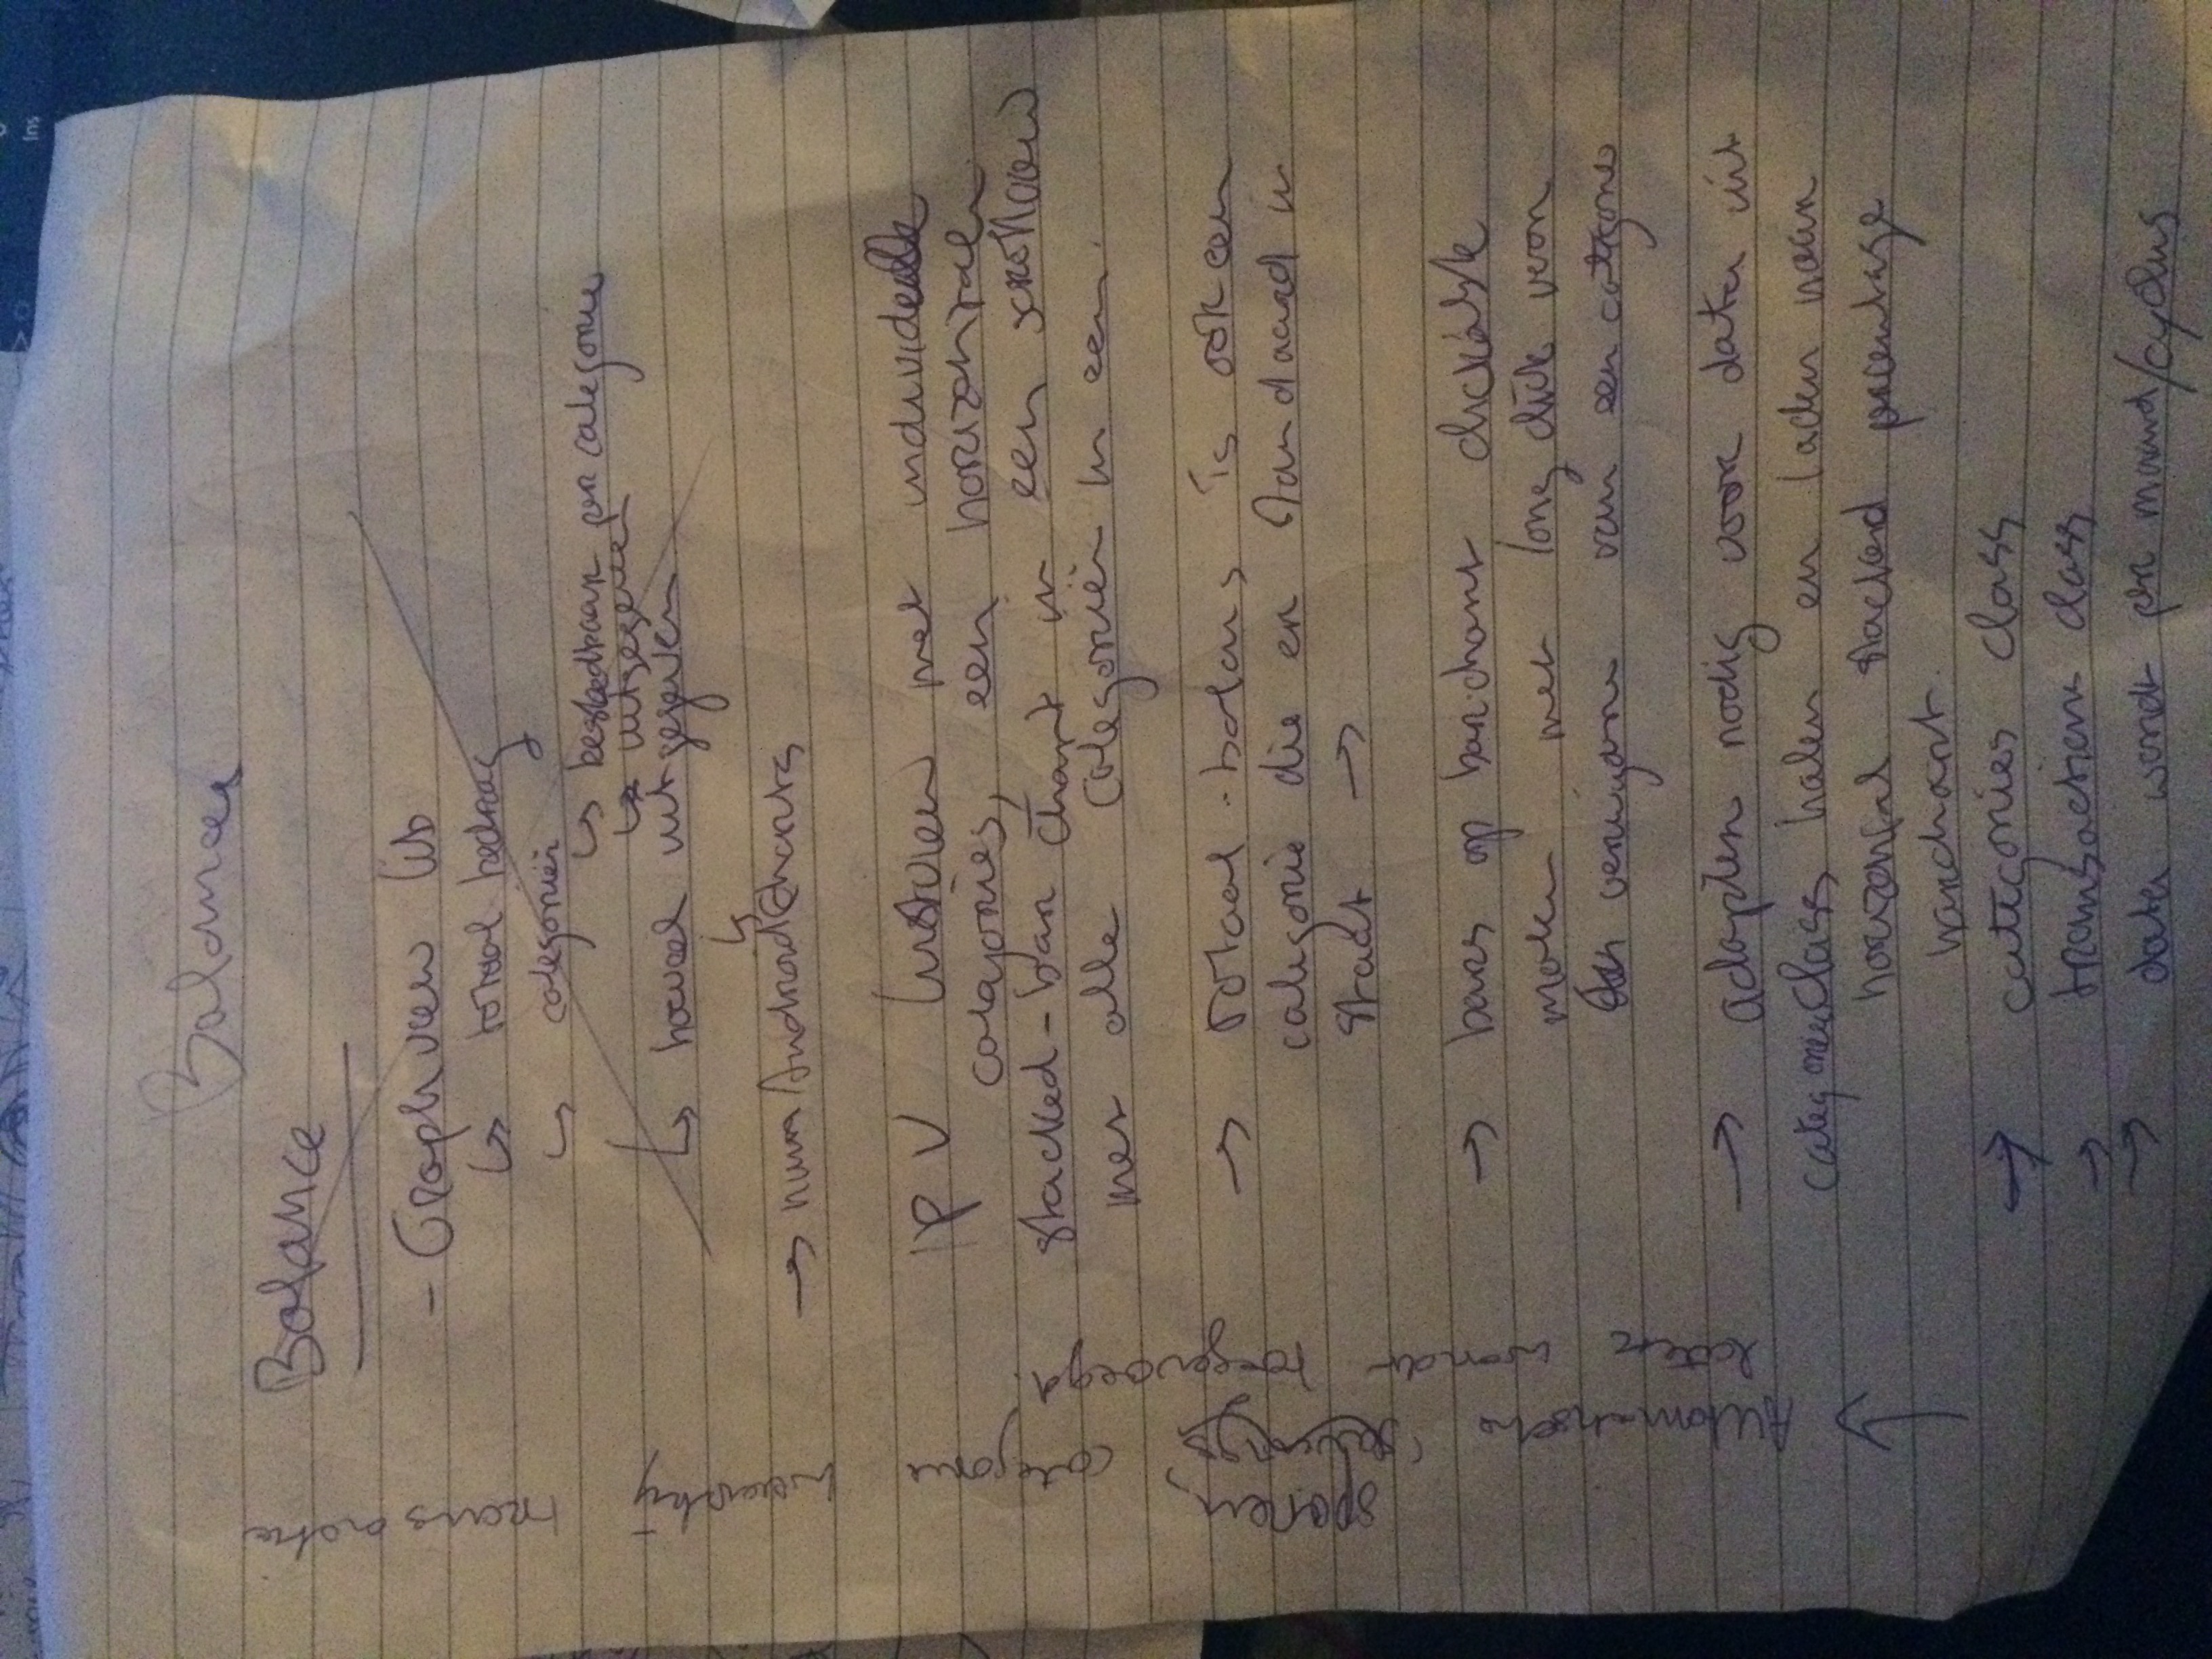 Ins
Balances
Balance
- Graphview lib
↳ totaal bedrag
↳ categoriën
↳ besteedbaar per categorie
↳ uitgegeven
↳ hoeveel uitgegeven
↳
→ AndroidCharts
ipv listview met individuele
categories, een horizontalen
stacked-bar chart in een scrollview
met alle categoriën in een.
→ totaal-balans is ook een
categorie die er standaard in
staat →
→ bars op barchart clickable
maken met long click voor
verwijderen van een categorie
→ adapter nodig voor data uit
categoriesClass halen en laden naar
horizontal stacked percentage
barchart.
→ categories class
→ transactions class
→ data wordt per maand/cyclus
→ Automatische sparen, categorie waarbij transactie
later wordt toegevoegd.